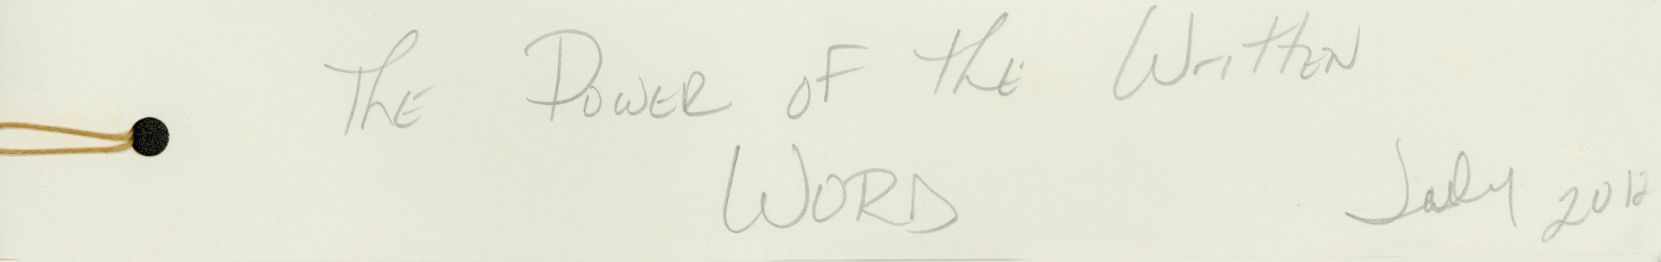 The Power of the Written
WORD
2012